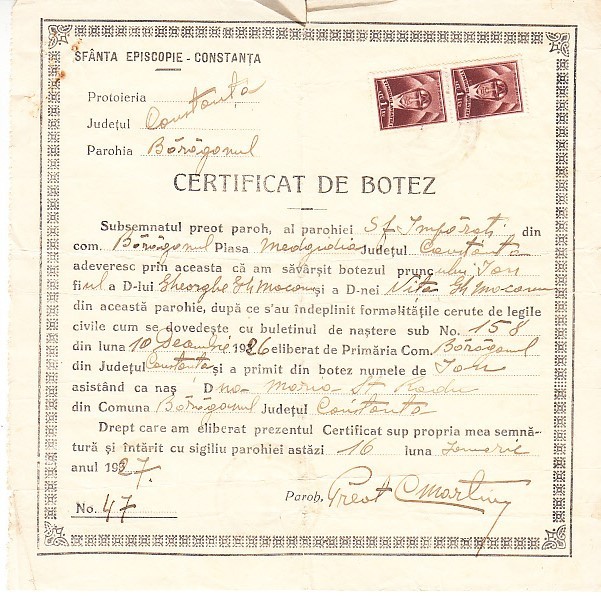 SFÂNTA EPISCOPIE - CONSTANȚA
Protoieria Constanța
Județul Constanța
Parohia Bărăganul
CERTIFICAT DE BOTEZ
Subsemnatul preot paroh, al parohiei Sf Împărați din
com. Bărăganul Plasa Medgidia Județul Constanta
adeveresc prin aceasta că am săvârșit botezul pruncului Ion
fiul a D-lui Gheorghe Gh Mocanu și a D-nei Vita Gh Mocanu
din această parohie, după ce s'au îndeplinit formalitățile cerute de legile
civile cum se dovedește cu buletinul de naștere sub No. 158
din luna 10 1926 eliberat de Primăria Com. Bărăganul
din Județul Constanta și a primit din botez numele de Ion
asistând ca naș D na Maria St Radu
din Comuna Bărăganul Județul Constanta
Drept care am eliberat prezentul Certificat sup propria mea semnă-
tură și întărit cu sigiliu parohiei astăzi 16 luna Ianuarie
anul 1927.
Paroh, Preot C Martin
No. 47